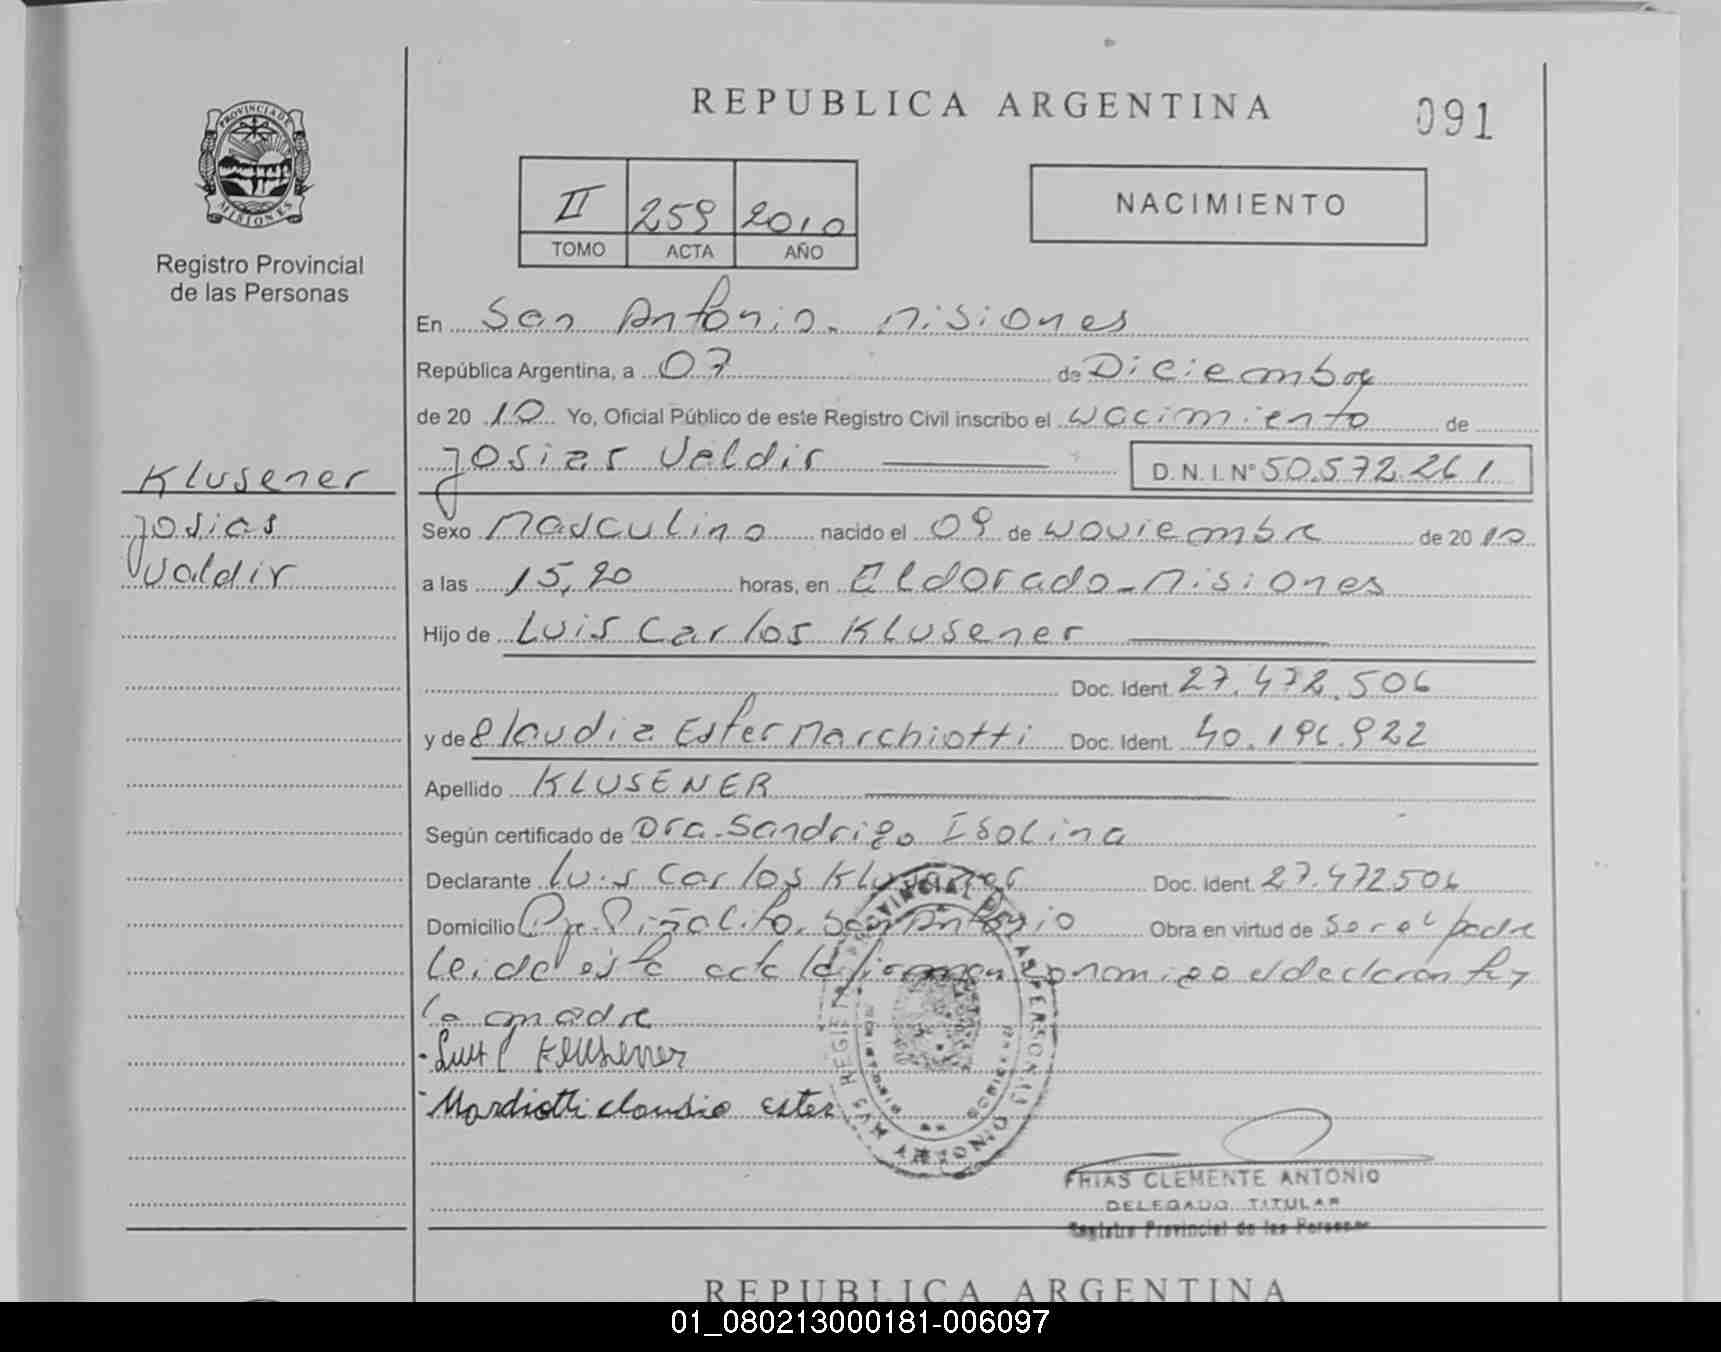 REPUBLICA ARGENTINA
091
PROVINCIA DE
MISIONES
Registro Provincial
de las Personas
II 259 2010
TOMO ACTA AÑO
NACIMIENTO
En San Antonio - Misiones
República Argentina, a 07 de Diciembre
de 20 10 Yo, Oficial Público de este Registro Civil inscribo el Nacimiento de
Josias Valdir D.N.I. N° 50.572.261
Klusener
Josias
Valdir
Sexo Masculino nacido el 09 de Noviembre de 20 10
a las 15,20 horas, en Eldorado - Misiones
Hijo de Luis Carlos Klusener
Doc. Ident. 27.472.506
y de Claudia Ester Marchiotti Doc. Ident. 40.196.922
Apellido KLUSENER
Según certificado de Dra. Sandrigo Isolina
Declarante Luis Carlos Klusener Doc. Ident. 27.472.506
Domicilio Piñalito. San Antonio Obra en virtud de Ser el padre
Leida esta acta la firman conmigo el declarante y
la madre
- Luis C Klusener
- Marchiotti Claudia Ester
FRIAS CLEMENTE ANTONIO
DELEGADO TITULAR
Registro Provincial de las Personas
REPUBLICA ARGENTINA
01_080213000181-006097